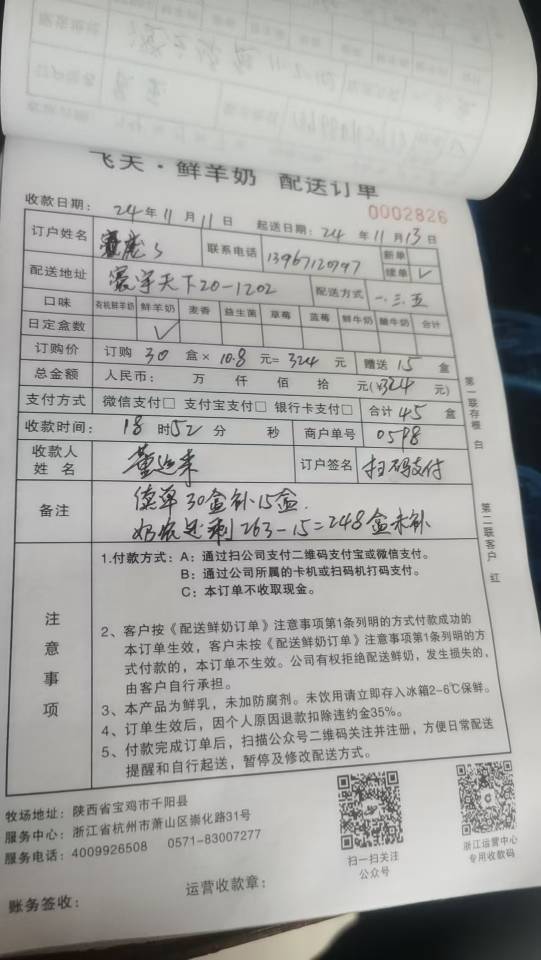 飞天·鲜羊奶 配送订单
收款日期: 24年11月11日 起送日期: 24年11月13日 0002826
订户姓名 联系电话 13967120797 新单
续单 ✓
配送地址 寰宇天下20-1202 配送方式 一.三.五
口味 有机鲜羊奶 鲜羊奶 麦香 益生菌 草莓 蓝莓 鲜牛奶 酸牛奶 合计
日定盒数 ✓
订购价 订购 30 盒× 10.8 元= 324 元 赠送 15 盒
总金额 人民币: 万 仟 佰 拾 元(¥324 元)
支付方式 微信支付□ 支付宝支付□ 银行卡支付□ 合计 45 盒
收款时间: 18 时 52 分 秒 商户单号 0598
收款人姓名 订户签名 扫码支付
备注 续单30盒补15盒.
还剩263-15=248盒未补
注意事项
1.付款方式: A: 通过扫公司支付二维码支付宝或微信支付。
B: 通过公司所属的卡机或扫码机打码支付。
C: 本订单不收取现金。
2、客户按《配送鲜奶订单》注意事项第1条列明的方式付款成功的
本订单生效，客户未按《配送鲜奶订单》注意事项第1条列明的方
式付款的，本订单不生效。公司有权拒绝配送鲜奶，发生损失的，
由客户自行承担。
3、本产品为鲜乳，未加防腐剂。未饮用请立即存入冰箱2-6℃保鲜。
4、订单生效后，因个人原因退款扣除违约金35%。
5、付款完成订单后，扫描公众号二维码关注并注册，方便日常配送
提醒和自行起送，暂停及修改配送方式。
第一联存根 白
第二联客户 红
牧场地址: 陕西省宝鸡市千阳县
服务中心: 浙江省杭州市萧山区崇化路31号
服务电话: 4009926508 0571-83007277
扫一扫关注
公众号
浙江运营中心
专用收款码
账务签收: 运营收款章: